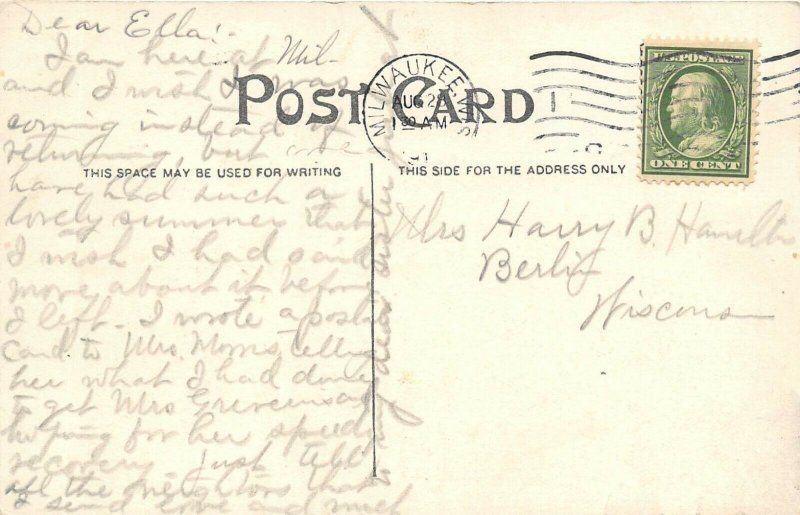 Dear Ella:-
I am here at Mil-
and I wish I was
coming instead of
returning, but we
have had such a
lovely summer that
I wish I had said
more about it before
I left. I wrote a postal
card to Mrs. Morris, telling
her what I had done
to get Mrs
hoping for her speedy
recovery. Just tell
all the neighbors that
I send love and much
to my dear sister
POST CARD
THIS SPACE MAY BE USED FOR WRITING
THIS SIDE FOR THE ADDRESS ONLY
MILWAUKEE, WIS.
AUG 2
1 30 AM
U.S. POSTAGE
ONE CENT
Mrs Harry B. Hamilton
Berlin
Wisconsin